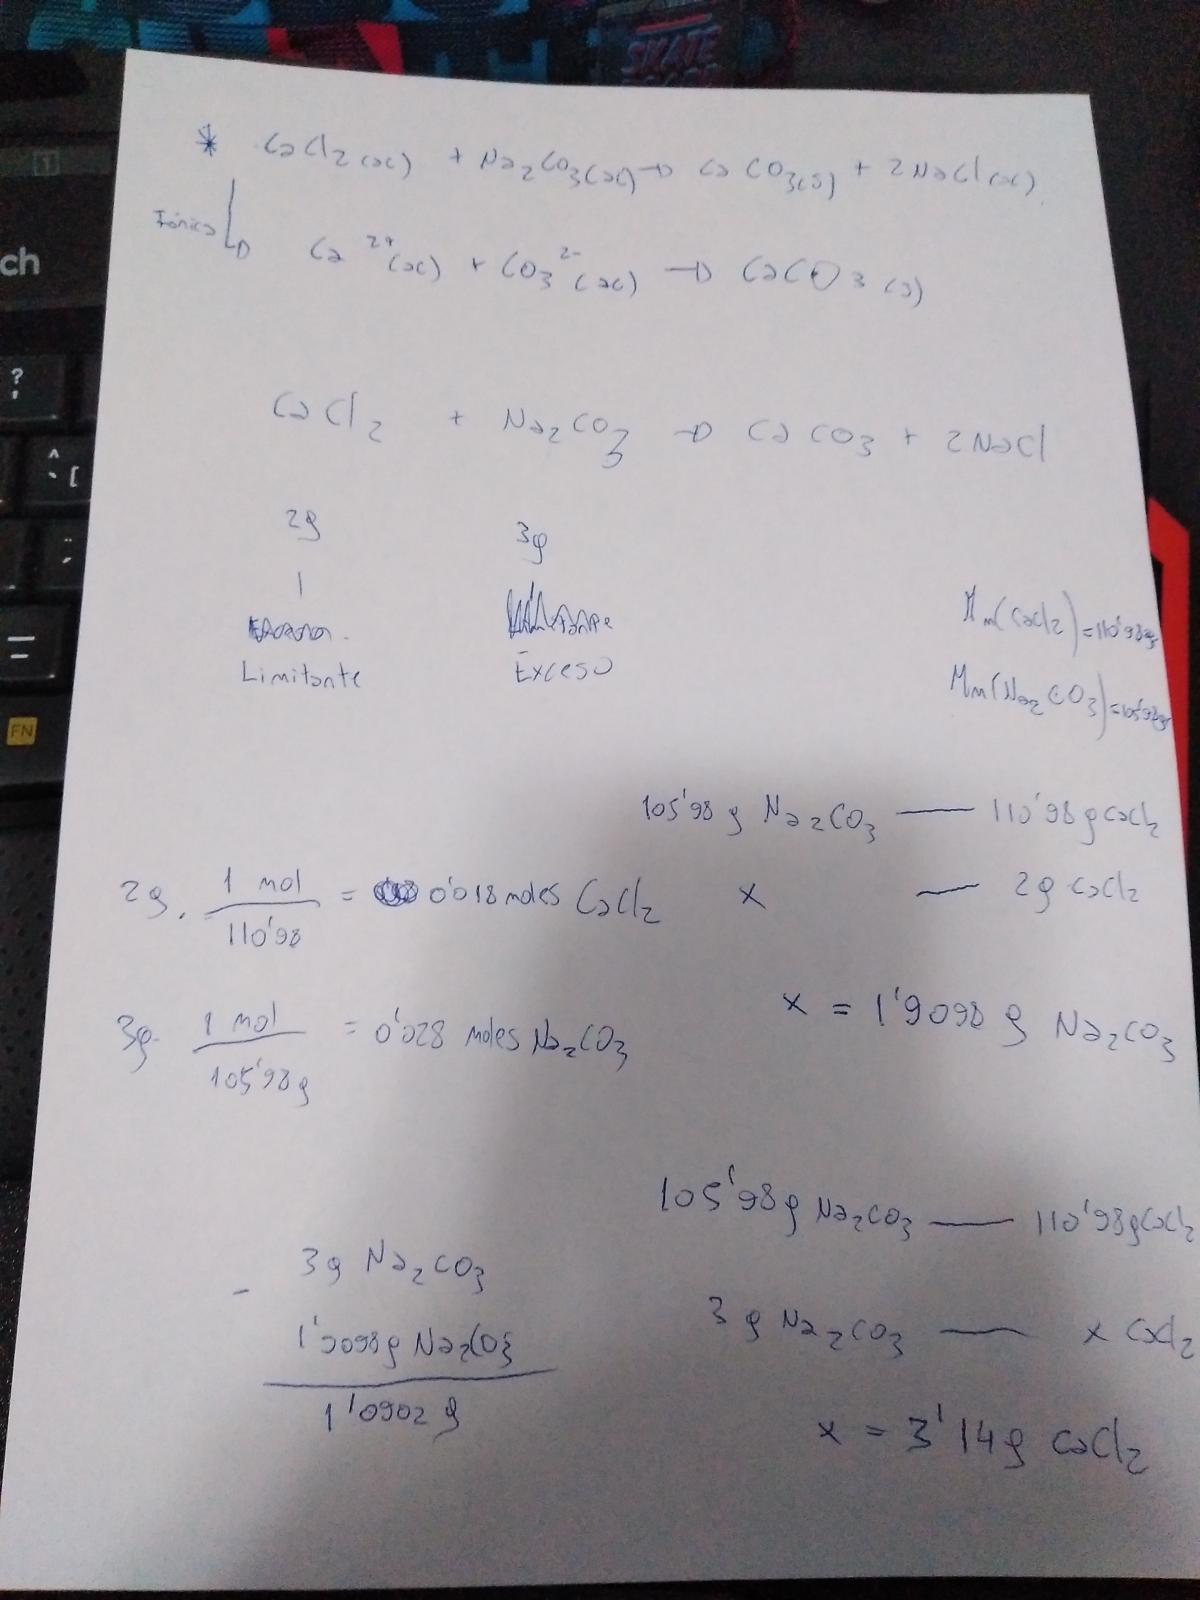 SKATE
ch
FN
* CaCl2 (ac) + Na2CO3(ac) → CaCO3(s) + 2NaCl(ac)
Iónica
Ca2+(ac) + CO3 2-(ac) → CaCO3 (s)
CaCl2 + Na2CO3 → CaCO3 + 2NaCl
2g 3g
Limitante Exceso
Mm(CaCl2)=110'98g
Mm(Na2CO3)=105'98g
105'98 g Na2CO3 — 110'98 g CaCl2
x — 2g CaCl2
2g. 1 mol / 110'98 = 0'018 moles CaCl2
x = 1'9098 g Na2CO3
3g. 1 mol / 105'98g = 0'028 moles Na2CO3
105'98g Na2CO3 — 110'98g CaCl2
3g Na2CO3 — x CaCl2
x = 3'14g CaCl2
3g Na2CO3
- 1'9098g Na2CO3
1'0902 g